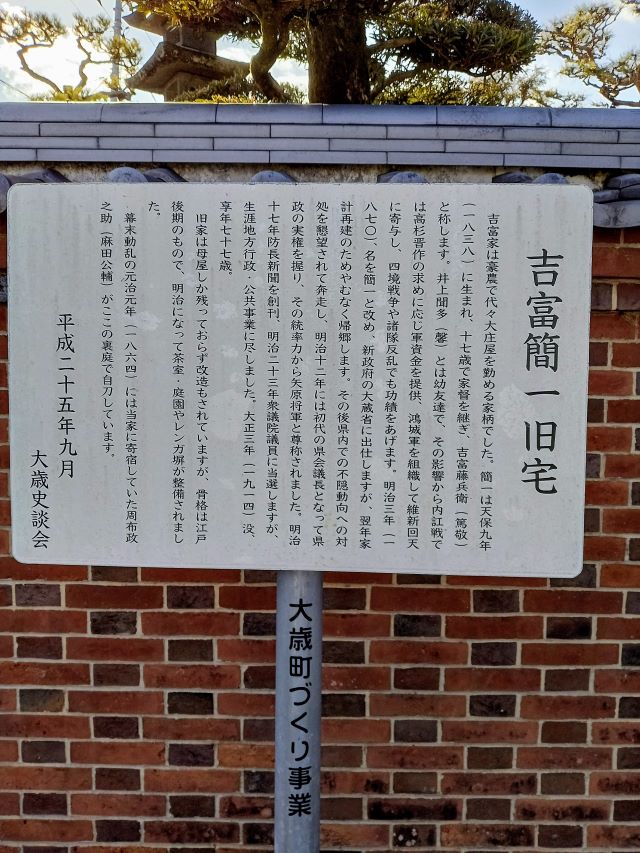 吉富簡一旧宅
吉富家は豪農で代々大庄屋を勤める家柄でした。簡一は天保九年
(一八三八)に生まれ、十七歳で家督を継ぎ、吉富藤兵衛(篤敬)
と称します。井上聞多(馨)とは幼友達で、その影響から内訌戦で
は高杉晋作の求めに応じ軍資金を提供、鴻城軍を組織して維新回天
に寄与し、四境戦争や諸隊反乱でも功績をあげます。明治三年(一
八七〇)、名を簡一と改め、新政府の大蔵省に出仕しますが、翌年家
計再建のためやむなく帰郷します。その後県内での不隠動向への対
処を懇望されて奔走し、明治十二年には初代の県会議長となって県
政の実権を握り、その統率力から矢原将軍と尊称されました。明治
十七年防長新聞を創刊、明治二十三年衆議院議員に当選しますが、
生涯地方行政・公共事業に尽しました。大正三年(一九一四)没、
享年七十七歳。
旧家は母屋しか残っておらず改造もされていますが、骨格は江戸
後期のもので、明治になって茶室・庭園やレンガ塀が整備されまし
た。
幕末動乱の元治元年(一八六四)には当家に寄宿していた周布政
之助(麻田公輔)がここの裏庭で自刀しています。
平成二十五年九月
大歳史談会
大歳町づくり事業